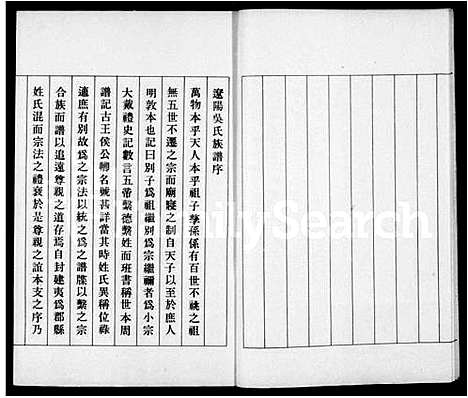 遼陽吳氏族譜序
萬物本乎天人本乎祖子孳孫係有百世不祧之祖
無五世不遷之宗而廟寢之制自天子以至於庶人
明敦本也記曰別子爲祖繼別爲宗繼禰者爲小宗
大戴禮史記數言五帝繫德繫姓而班書稱世本周
譜記古王侯公卿名號甚詳當其時姓氏異稱位祿
適庶有別故爲之宗法以統之爲之譜牒以繫之宗
合族而譜以追遠尊親之道存焉自封建夷爲郡縣
姓氏混而宗法之禮衰於是尊親之誼本支之序乃
ilySearch